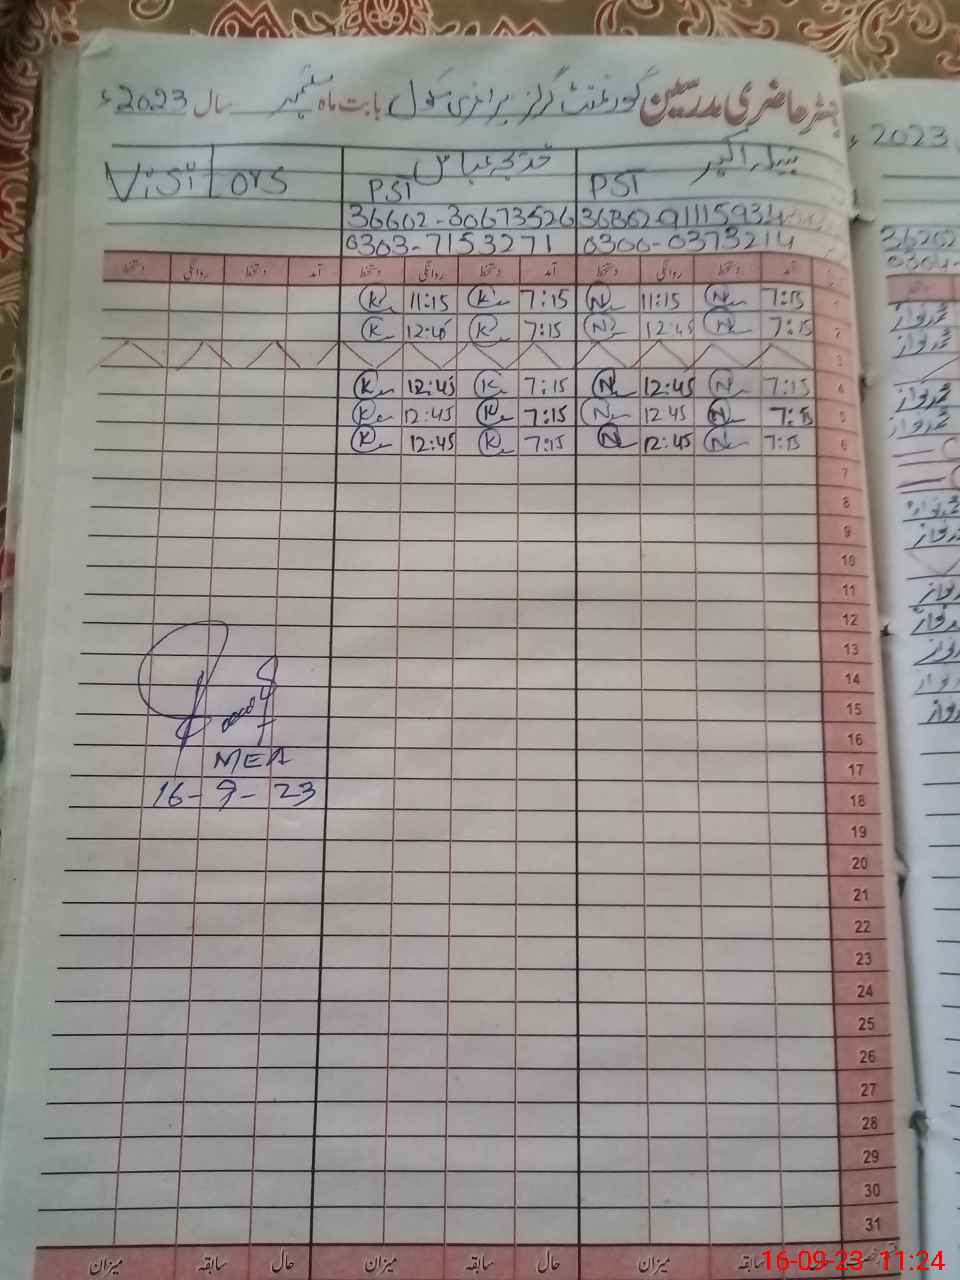 رجسٹر حاضری مدرسین گورنمنٹ گرلز پرائمری سکول بابت ماہ ستمبر سال 2023ء
نبیلہ اکبر خدیجہ عباس Visitors
PST PST
36602-30673526
0300-0373214 0303-7153271
آمد دستخط روانگی دستخط آمد دستخط روانگی دستخط آمد دستخط روانگی دستخط
1 7:15 N 11:15 N 7:15 K 11:15 K
2 7:15 N 12:45 N 7:15 K 12:45 K
3
4 7:15 N 12:45 N 7:15 K 12:45 K
5 7:15 N 12:45 N 7:15 K 12:45 K
6 7:15 N 12:45 N 7:15 K 12:45 K
7
8
9
10
11
12
13
14
15
16
MEA
17
16-9-23
18
19
20
21
22
23
24
25
26
27
28
29
30
31
سابقہ میزان حال سابقہ میزان حال سابقہ میزان
16-09-23 11:24
2023ء
محمد نواز
محمد نواز
محمد نواز
محمد نواز